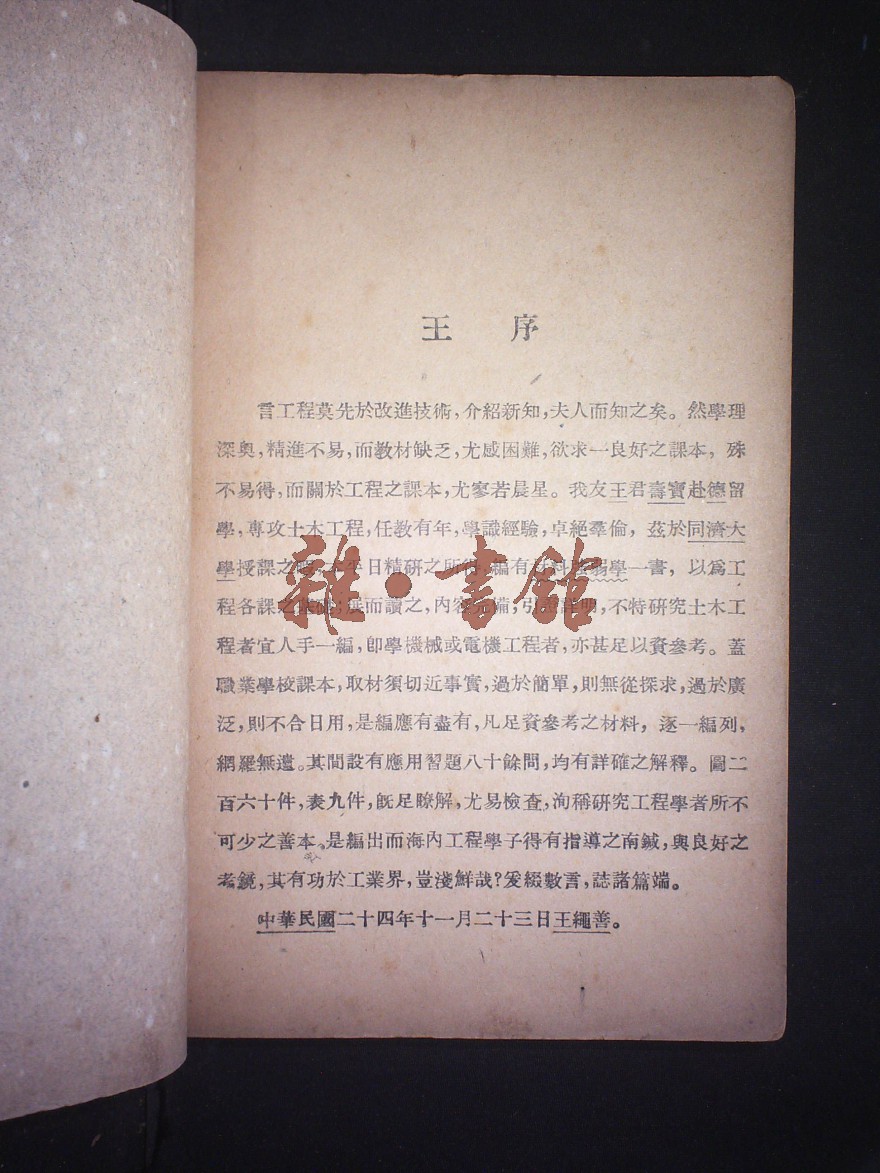 王序
言工程莫先於改進技術，介紹新知，夫人而知之矣。然學理
深奥，精進不易，而教材缺乏，尤感困難，欲求一良好之課本，殊
不易得，而關於工程之課本，尤寥若晨星。我友王君壽寶赴德留
學，專攻土木工程，任教有年，學識經驗，卓絕羣倫，茲於同濟大
學授課之 日精研之所 編有 料 弱學一書，以爲工
程各課之 而讀之，內容 備；引 明，不特研究土木工
程者宜人手一編，卽學機械或電機工程者，亦甚足以資參考。蓋
職業學校課本，取材須切近事實，過於簡單，則無從探求，過於廣
泛，則不合日用，是編應有盡有，凡足資參考之材料，逐一編列，
網羅無遺。其間設有應用習題八十餘問，均有詳確之解釋。圖二
百六十件，表九件，旣足瞭解，尤易檢查，洵稱研究工程學者所不
可少之善本。是編出而海內工程學子得有指導之南鍼，與良好之
考鏡，其有功於工業界，豈淺鮮哉？爰綴數言，誌諸篇端。
中華民國二十四年十一月二十三日王繩善。
雜·書館